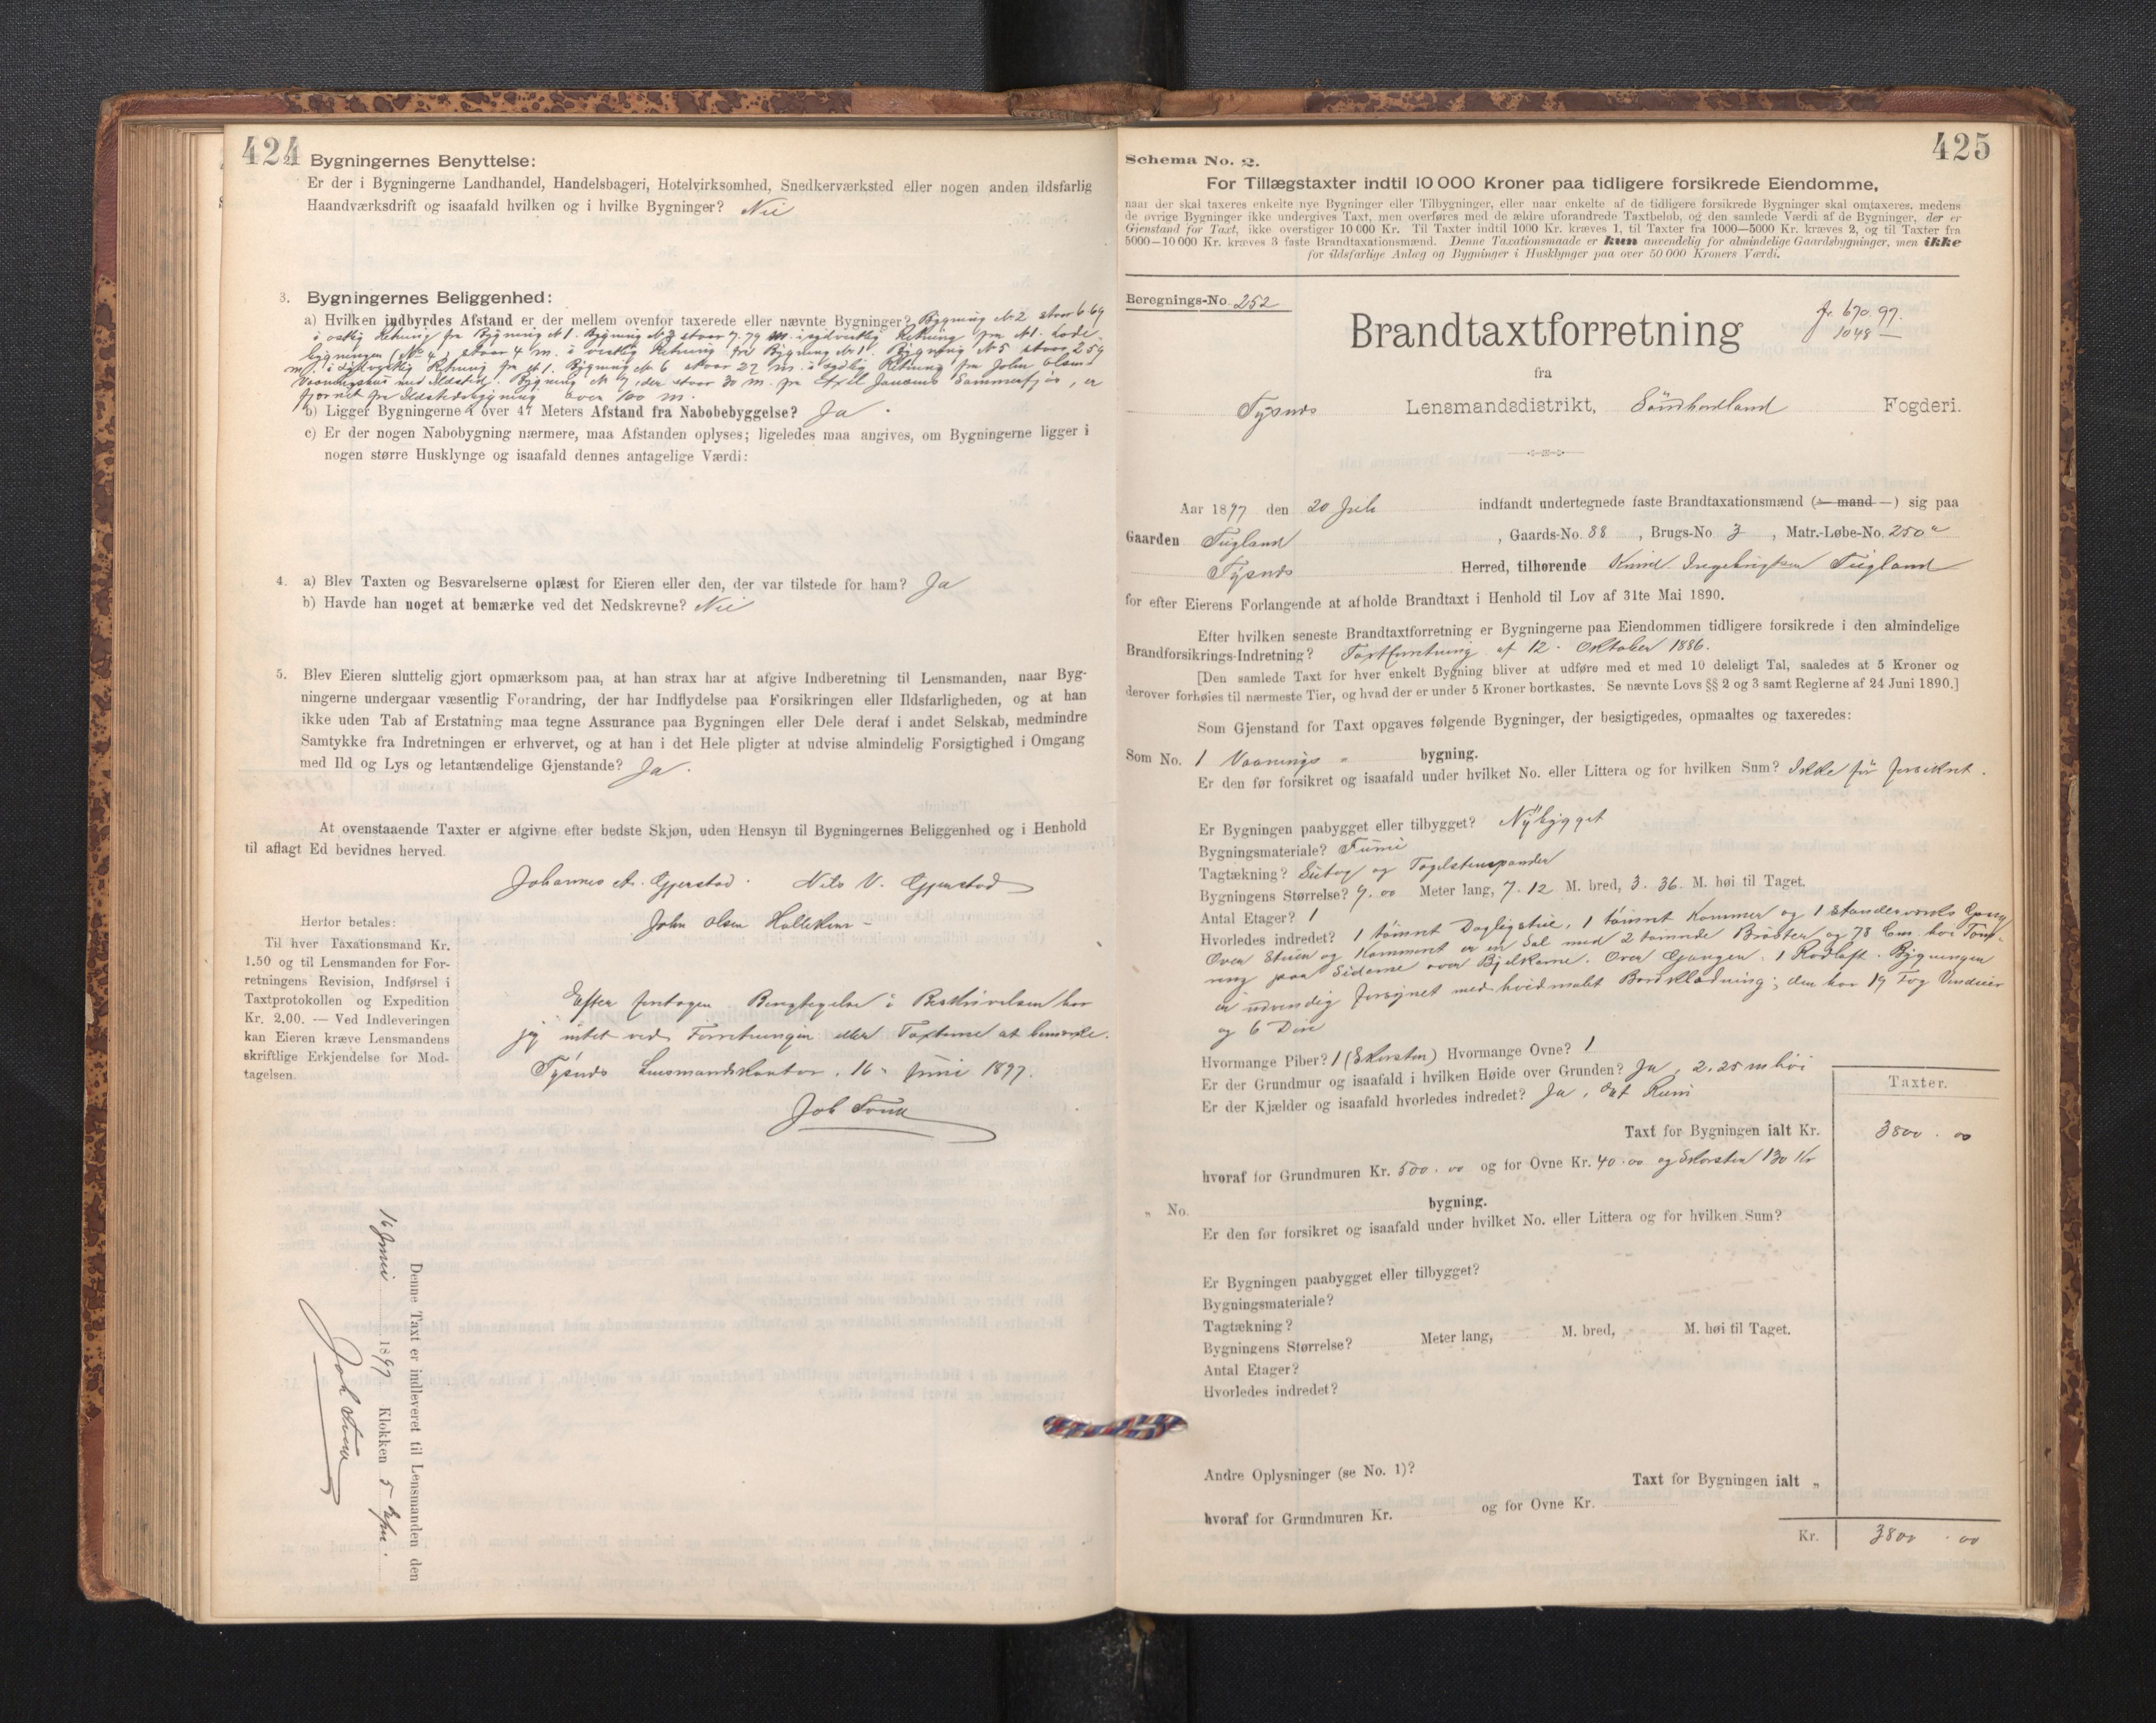 424
2. Bygningernes Benyttelse:
Er der i Bygningerne Landhandel, Handelsbageri, Hotelvirksomhed, Snedkerværksted eller nogen anden ildsfarlig
Haandværksdrift og isaafald hvilken og i hvilke Bygninger? Nei
3. Bygningernes Beliggenhed:
a) Hvilken indbyrdes Afstand er der mellem ovenfor taxerede eller nævnte Bygninger? Bygning No 2 staar 6.69
i østlig Retning fra Bygning No 1. Bygning No 3 staar 7.79 m. i sydvestlig Retning fra No 1. Lade-
bygningen (No 4) staar 4 m. i vestlig Retning fra Bygning No 1. Bygning No 5 staar 259
m. i sydvestlig Retning fra No 1. Bygning No 6 staar 22 m. i sydlig Retning fra John Olsens
Vaaningshus med Ildsted. Bygning No 7, der staar 30 m. fra Jansens Sammerfjøs, er
fjernet fra Ildstedsbygning over 100 m.
b) Ligger Bygningerne over 47 Meters Afstand fra Nabobebyggelse? Ja.
c) Er der nogen Nabobygning nærmere, maa Afstanden oplyses; ligeledes maa angives, om Bygningerne ligger i
nogen større Husklynge og isaafald dennes antagelige Værdi:
4. a) Blev Taxten og Besvarelserne oplæst for Eieren eller den, der var tilstede for ham? Ja
b) Havde han noget at bemærke ved det Nedskrevne? Nei
5. Blev Eieren sluttelig gjort opmærksom paa, at han strax har at afgive Indberetning til Lensmanden, naar Byg-
ningerne undergaar væsentlig Forandring, der har Indflydelse paa Forsikringen eller Ildsfarligheden, og at han
ikke uden Tab af Erstatning maa tegne Assurance paa Bygningen eller Dele deraf i andet Selskab, medmindre
Samtykke fra Indretningen er erhvervet, og at han i det Hele pligter at udvise almindelig Forsigtighed i Omgang
med Ild og Lys og letantændelige Gjenstande? Ja.
At ovenstaaende Taxter er afgivne efter bedste Skjøn, uden Hensyn til Bygningernes Beliggenhed og i Henhold
til aflagt Ed bevidnes herved.
Johannes A. Gjerstad. Nils V. Gjerstad
John Olsen Hallekim
Herfor betales:
Til hver Taxationsmand Kr.
1.50 og til Lensmanden for For-
retningens Revision, Indførsel i
Taxtprotokollen og Expedition
Kr. 2.00. — Ved Indleveringen
kan Eieren kræve Lensmandens
skriftlige Erkjendelse for Mod-
tagelsen.
Efter fortagen Berigtigelse i Beskrivelsen har
jeg intet ved Forretningen eller Taxterne at bemærke.
Tysnes Lensmandskontor, 16. Juni 1897.
Joh
Denne Taxt er indleveret til Lensmanden den
16 Juni 1897 Klokken 5
Joh
425
Schema No. 2.
For Tillægstaxter indtil 10 000 Kroner paa tidligere forsikrede Eiendomme,
naar der skal taxeres enkelte nye Bygninger eller Tilbygninger, eller naar enkelte af de tidligere forsikrede Bygninger skal omtaxeres, medens
de øvrige Bygninger ikke undergives Taxt, men overføres med de ældre uforandrede Taxtbeløb, og den samlede Værdi af de Bygninger, der er
Gjenstand for Taxt, ikke overstiger 10 000 Kr. Til Taxter indtil 1000 Kr. kræves 1, til Taxter fra 1000—5000 Kr. kræves 2, og til Taxter fra
5000—10 000 Kr. kræves 3 faste Brandtaxationsmænd. Denne Taxationsmaade er kun anvendelig for almindelige Gaardsbygninger, men ikke
for ildsfarlige Anlæg og Bygninger i Husklynger paa over 50 000 Kroners Værdi.
Beregnings-No. 252
Jr. 670.97.
1048
Brandtaxtforretning
fra
Tysnes Lensmandsdistrikt, Søndhordland Fogderi.
Aar 1897 den 20 Juli indfandt undertegnede faste Brandtaxationsmænd (— mand —) sig paa
Gaarden Tegland, Gaards-No. 88, Brugs-No 3, Matr.-Løbe-No. 250a
Tysnes Herred, tilhørende Knud Ingebrigtsen Tegland
for efter Eierens Forlangende at afholde Brandtaxt i Henhold til Lov af 31te Mai 1890.
Efter hvilken seneste Brandtaxtforretning er Bygningerne paa Eiendommen tidligere forsikrede i den almindelige
Brandforsikrings-Indretning? Taxtforretning af 12. Oktober 1886.
[Den samlede Taxt for hver enkelt Bygning bliver at udføre med et med 10 deleligt Tal, saaledes at 5 Kroner og
derover forhøies til nærmeste Tier, og hvad der er under 5 Kroner bortkastes. Se nævnte Lovs §§ 2 og 3 samt Reglerne af 24 Juni 1890.]
Som Gjenstand for Taxt opgaves følgende Bygninger, der besigtigedes, opmaaltes og taxeredes:
Som No. 1 Vaanings bygning.
Er den før forsikret og isaafald under hvilket No. eller Littera og for hvilken Sum? Ikke før forsikret.
Er Bygningen paabygget eller tilbygget? Nybygget
Bygningsmateriale? Tømmer
Tagtækning? og Taglstenspander
Bygningens Størrelse? 9.00 Meter lang, 7.12 M. bred, 3.36 M. høi til Taget.
Antal Etager? 1
Hvorledes indredet? 1 tømret Dagligstue, 1 tømret Kammer og 1 Standerværks Gang
Over Stuen og Kammeret er en Sal med 2 tømrede Brøster og 78 Cm. høi Tøm-
ring paa Siderne over Bjelkerne. Over Gangen 1 Rodloft. Bygningen
er udvendig forsynet med hvidmalt Bordklædning; den har 19 Fag Vinduer
og 6 Døre
Hvormange Piber? 1 (Skorsten) Hvormange Ovne? 1
Er der Grundmur og isaafald i hvilken Høide over Grunden? Ja, 2,25 m høi
Er der Kjælder og isaafald hvorledes indredet? Ja, et Rum
Taxter.
Taxt for Bygningen ialt Kr. 3800.00
hvoraf for Grundmuren Kr. 500.00 og for Ovne Kr. 40.00 og Skorsten 130 Kr
„ No. bygning.
Er den før forsikret og isaafald under hvilket No. eller Littera og for hvilken Sum?
Er Bygningen paabygget eller tilbygget?
Bygningsmateriale?
Tagtækning?
Bygningens Størrelse? Meter lang, M. bred, M. høi til Taget.
Antal Etager?
Hvorledes indredet?
Andre Oplysninger (se No. 1)?
Taxt for Bygningen ialt „
hvoraf for Grundmuren Kr. og for Ovne Kr.
Kr. 3800.00